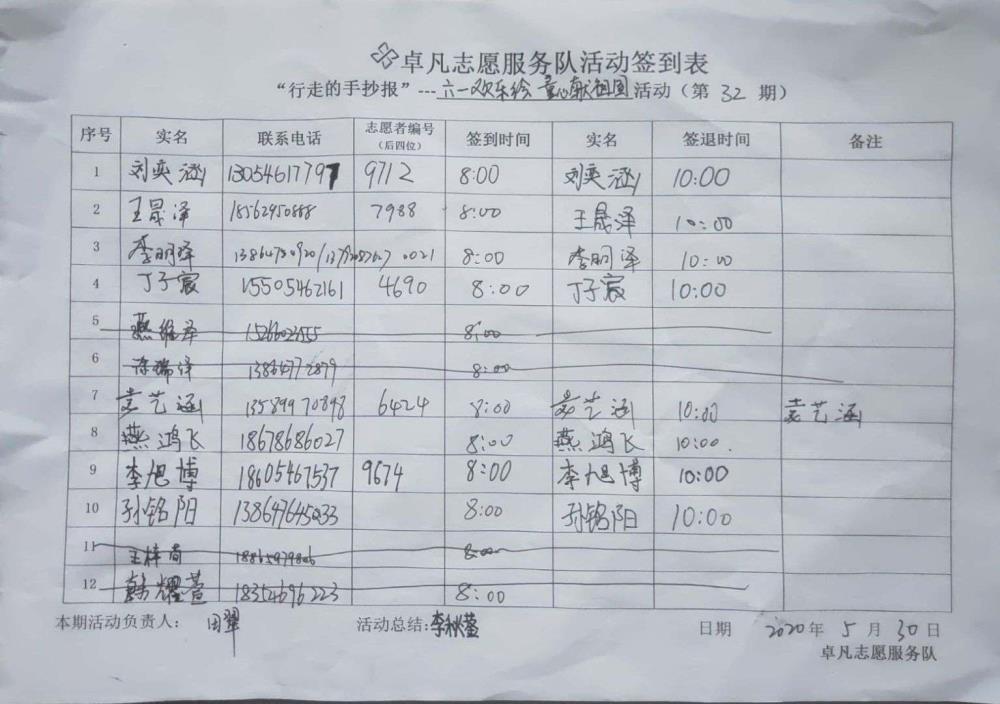 卓凡志愿服务队活动签到表
“行走的手抄报”---六一欢乐绘 童心献祖国活动（第 32 期）
序号 实名 联系电话 志愿者编号（后四位） 签到时间 实名 签退时间 备注
1 刘奕涵 13054617797 9712 8:00 刘奕涵 10:00
2 王晟泽 18562950888 7988 8:00 王晟泽 10:00
3 李明泽 0021 8:00 李明泽 10:00
4 丁子宸 15505462161 4690 8:00 丁子宸 10:00
5 燕维泽 8:00
6 13864772879 8:00
7 袁艺涵 13589970898 6424 8:00 袁艺涵 10:00 袁艺涵
8 燕鸿飞 18678686027 8:00 燕鸿飞 10:00.
9 李旭博 18605467537 9674 8:00 李旭博 10:00
10 孙铭阳 138647645033 8:00 孙铭阳 10:00
11 8:00
12 韩耀萱 18354696223 8:00
本期活动负责人： 田翠 活动总结: 日期 2020 年 5 月 30 日
卓凡志愿服务队